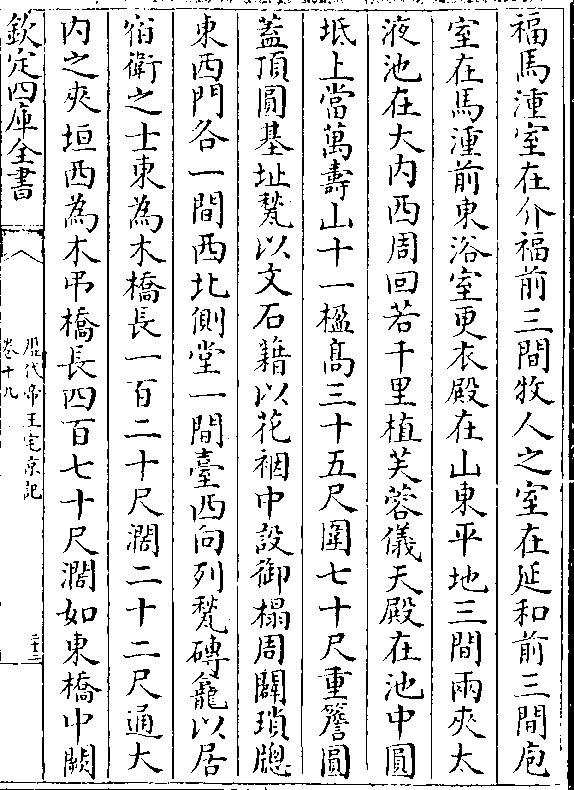 福馬湩室在介福前三間牧人之室在延和前三間庖
室在馬湩前東浴室更衣殿在山東平地三間兩夾太
液池在大内西周回若干里植芙蓉儀天殿在池中圓
坻上當萬壽山十一楹髙三十五尺圍七十尺重簷圓
蓋頂圓基址甃以文石藉以花裀中設御榻周闢瑣牎
東西門各一間西北側堂一間臺西向列甃磚龕以居
宿衛之士東為木橋長一百二十尺濶二十二尺通大
内之夾垣西為木吊橋長四百七十尺濶如東橋中闕
欽定四庫全書
歴代帝王宅京記
卷十九
二十二